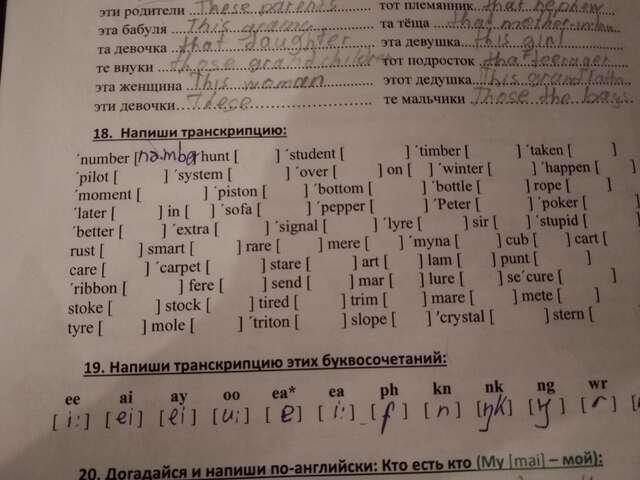 эти родители These parents тот племянник that nephew
эта бабуля This granny та тёща that mother-in-law
та девочка that daughter эта девушка this girl
те внуки those grandchildren тот подросток that teenager
эта женщина This woman этот дедушка This grandfather
эти девочки These те мальчики Those the boys
18. Напиши транскрипцию:
´number [nambə hunt [ ] ´student [ ] ´timber [ ] ´taken [ ]
´pilot [ ] ´system [ ] ´over [ ] on [ ] ´winter [ ] ´happen [ ]
´moment [ ] ´piston [ ] ´bottom [ ] ´bottle [ ] rope [ ]
´later [ ] in [ ] ´sofa [ ] ´pepper [ ] ´Peter [ ] ´poker [ ]
´better [ ] ´extra [ ] ´signal [ ] ´lyre [ ] sir [ ] ´stupid [ ]
rust [ ] smart [ ] rare [ ] mere [ ] ´myna [ ] cub [ ] cart [
care [ ] ´carpet [ ] stare [ ] art [ ] lam [ ] punt [ ]
´ribbon [ ] fere [ ] send [ ] mar [ ] lure [ ] se´cure [ ]
stoke [ ] stock [ ] tired [ ] trim [ ] mare [ ] mete [ ]
tyre [ ] mole [ ] ´triton [ ] slope [ ] ´crystal [ ] stern [
19. Напиши транскрипцию этих буквосочетаний:
ee ai ay oo ea* ea ph kn nk ng wr
[i:] [ei] [ei] [u:] [e] [i:] [f] [n] [ŋk] [ŋ] [r] [
20. Догадайся и напиши по-английски: Кто есть кто (My [mai] – мой):